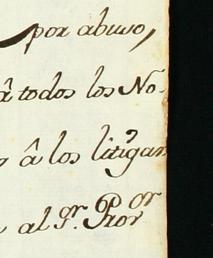 por abuso,
â todos los No-
â los litigan
al Sr. Pror